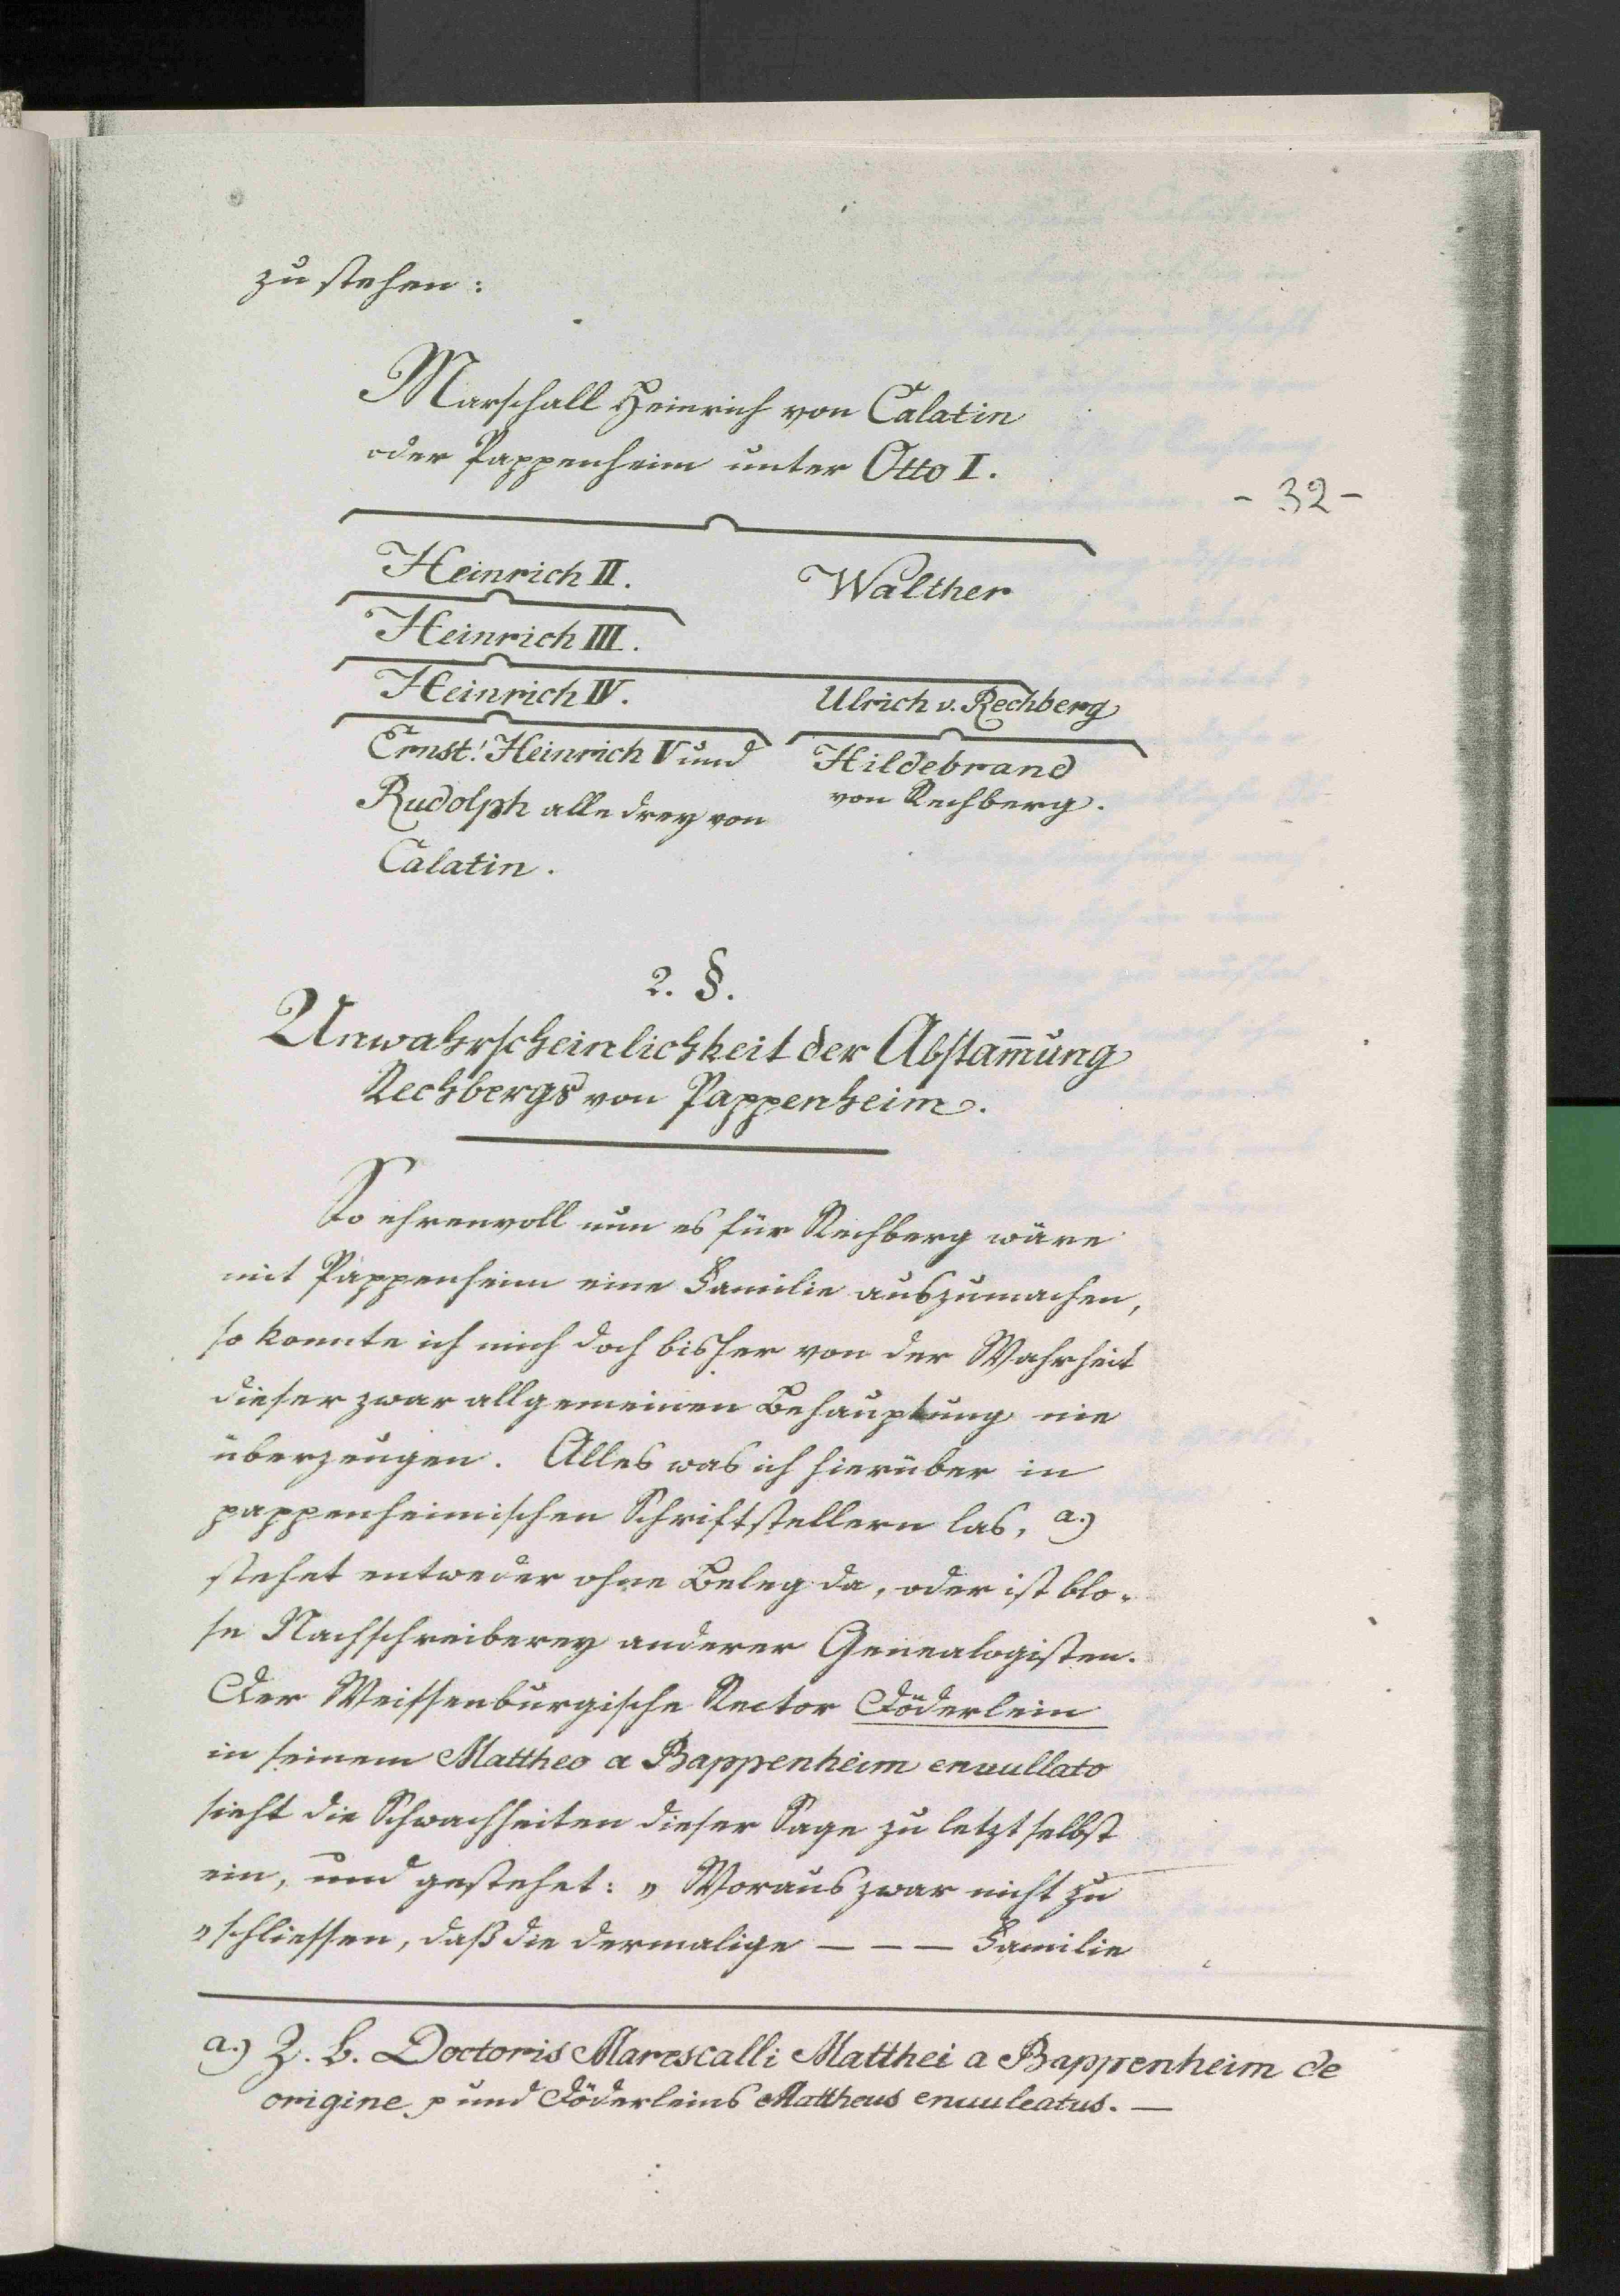 zu stehen:
Marschall Heinrich von Calatin
oder Pappenheim unter Otto I.
- 32 -
Heinrich II. Walther
Heinrich III.
Heinrich IV. Ulrich v. Rechberg
Ernst! Heinrich V und Hildebrand
Rudolph alle drey von von Rechberg.
Calatin.
2. §.
Unwahrscheinlichkeit der Abstam̄ung
Rechbergs von Pappenheim.
So ehrenvoll nun es für Rechberg wäre
mit Pappenheim eine Familie auszumachen,
so konnte ich mich doch bisher von der Wahrheit
dieser zwar allgemeinen Behauptung nie
überzeugen. Alles was ich hierüber in
pappenheimischen Schriftstellern las, a.)
stehet entweder ohne Beleg da, oder ist blo-
se Nachschreiberey anderer Genealogisten.
Der Weissenburgische Rector Döderlein
in seinem Mattheo a Bappenheim enuullato
sieht die Schwachheiten dieser Sage zu letzt selbst
ein, und gestehet: „ Woraus zwar nicht zu
„ schliessen, daß die dermalige – – – Familie
a.) Z. B. Doctoris Marescalli Matthei a Bappenheim de
origine p und Döderleins Mattheus enuuleatus. —